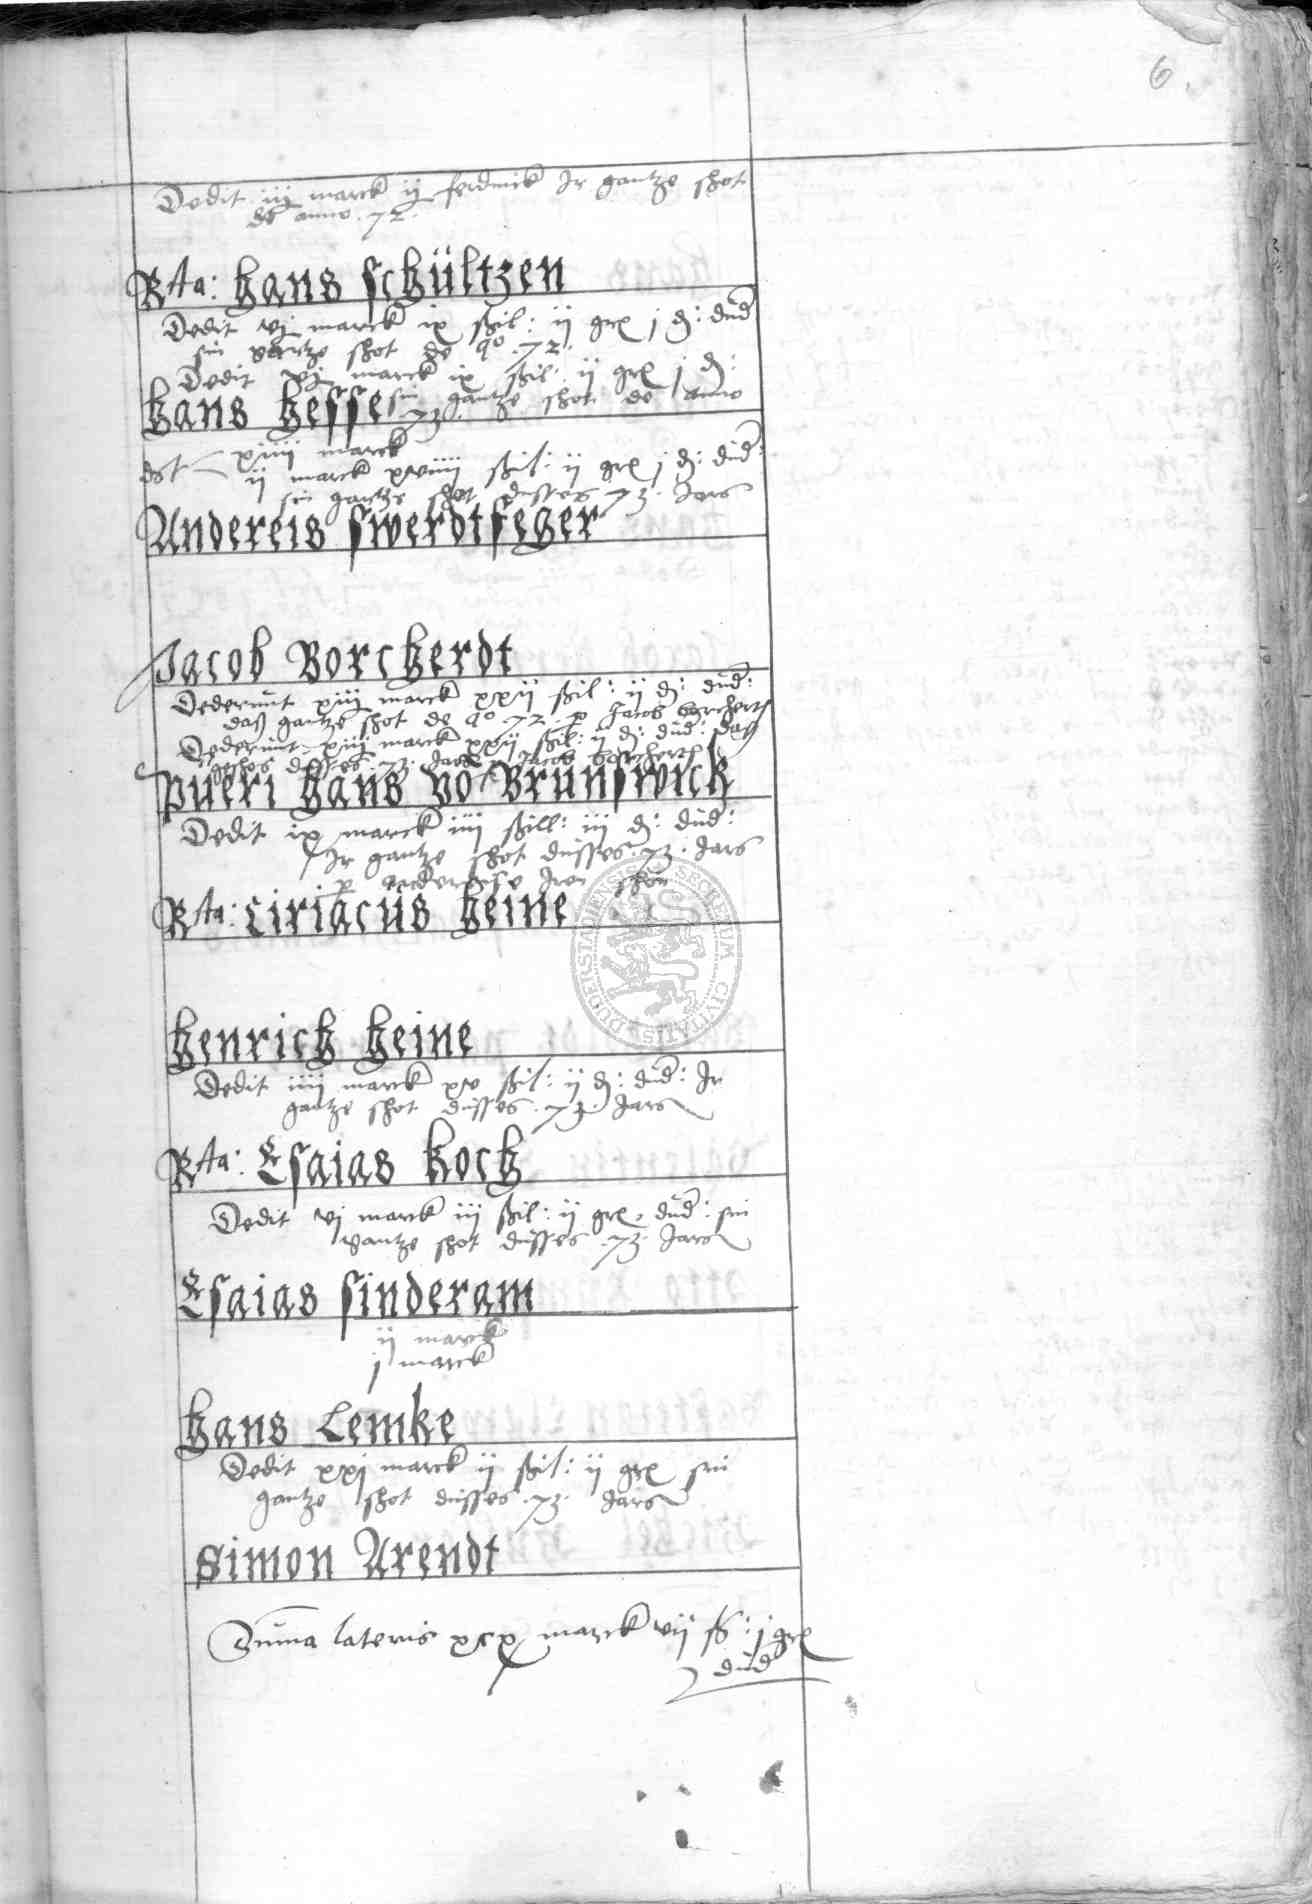 6
Dedit iij marck ij ferdinck Ir gantze shot
de anno . 72 .
Rta: Hans Schültzen
Dedit vj marck ix ßil: ij grx j d: düd
sin gantze shot de ao . 72 .
Dedit vj marck ix ßil: ij grx j d:
sin gantze shot de anno
73
Hans Hesse
dt xiiij marck
ij marck xviiij ßil: ij grx j d: düd:
sin gantze shot düsses 73 . Jars
Andereis Swerdtfeger
Jacob Borcherdt
Dederunt xiij marck xxij ßil: ij d: düd:
daß gantze shot de ao . 72 . p Jacob borcherth
Dederunt xiij marck xxij ßil: ij d: düd: daß
düsses . 73 . Jars Jacob borcherth
Pueri Hans vo Brunswick
Dedit ix marck iiij ßill: iij d: düd:
Ir gantze shot düsses . 73 . Jars
p Iren
Rta: Ciriacus Heine
Henrich Heine
Dedit iiij marck xv ßil: ij d: düd: Ir
gantze shot düsses . 73 Jars
Rta: Esaias Koch
Dedit vj marck iij ßil: ij grx . düd: sin
gantze shot düsses . 73 . Jars
Esaias Sinderam
ij marck
j marck
Hans Lemke
Dedit xxj marck ij ßil: ij grx sin
gantze shot düsses . 73 . Jars
Simon Arendt
Suma lateris xcx marck vij ß: j grx
düd
SECRETUM CIVITATIS DUDERSTADIENSIS